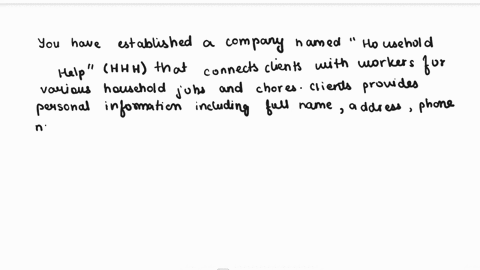 You have established a company named "Household
Help" (HHH) that connects clients with workers for
various household jobs and chores. Clients provides
personal information including full name, address, phone
n